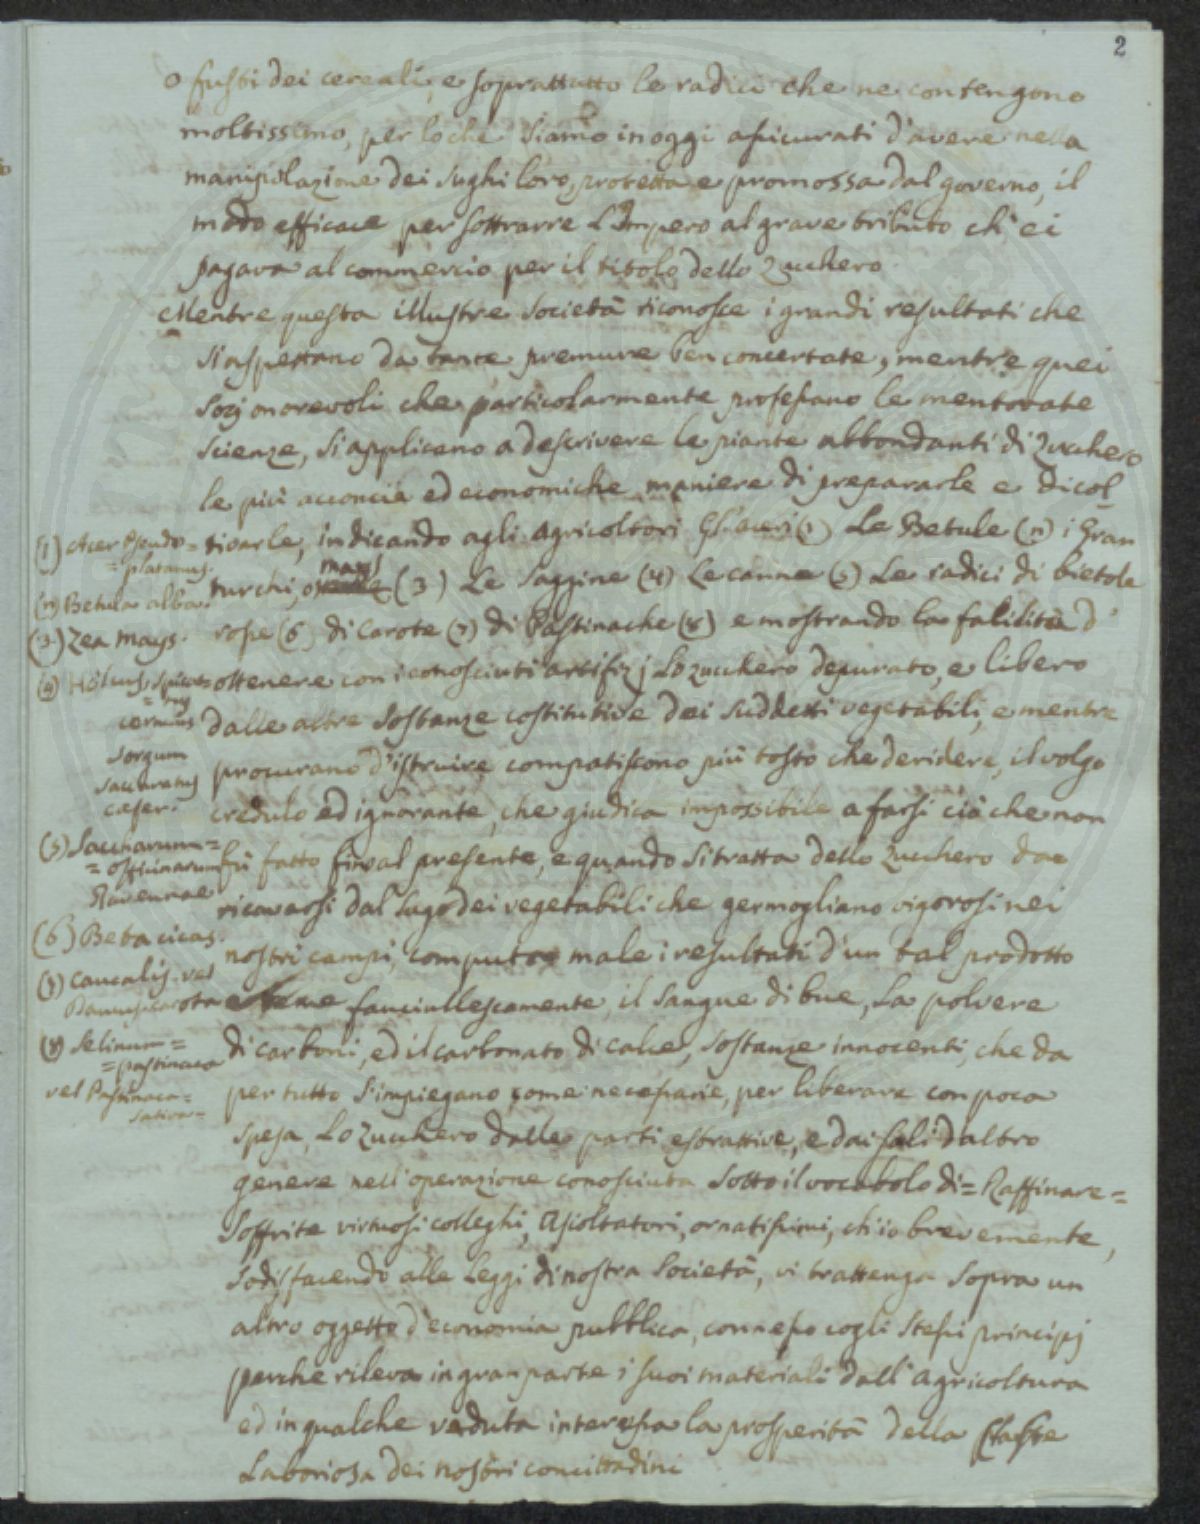 2
o fusti dei cereali, e soprattutto le radici che ne contengono
moltissimo, per loche siamo in oggi assicurati d'avere nella
manipolazione dei sughi loro, protetta e promossa dal governo, il
modo efficace per sottrarre L'Impero al grave tributo ch'ei
pagava al commercio per il titolo dello zucchero
Mentre questa illustre società riconosce i grandi resultati che
s'aspettano da tante premure ben concertate, mentre quei
socj onorevoli che particolarmente professano le mentovate
scienze, si applicano a descrivere le piante abbondanti di zucchero
le più acconcia ed economiche maniere di prepararle e di col
tivarle, indicando agli agricoltori Gli aceri (1) Le Betule (2) i Gran
turchi, o mays (3) Le saggine (4) Le canne (5) Le radici di bietole
rosse (6) di Carote (7) di Pastinache (8) e mostrando la falilità d'
ottenere con i conosciuti artifizj Lo zucchero depurato, e libero
dalle altre sostanze costitutive dei suddetti vegetabili, e mentre
procurano d'istruire compatiscono più tosto che deridere, il volgo
credulo ed ignorante, che giudica impossibile a farsi ciò che non
fù fatto fino al presente, e quando si tratta dello zucchero da
ricavarsi dal sugo dei vegetabili che germogliano vigorosi nei
nostri campi, computa male i resultati d'un tal prodotto
e teme fanciullescamente, il sangue di bue, La polvere
di carboni, ed il carbonato di calce, sostanze innocenti, che da
per tutto s'impiegano come necessarie, per liberare con poca
spesa, Lo zucchero dalle parti estrattive, e dai sali d'altro
genere nell'operazione conosciuta sotto il vocabolo di = Raffinare =
Soffrite virtuosi colleghi, Ascoltatori, ornatissimi, ch'io brevemente,
sodisfacendo alle Leggi di nostra Società, vi trattenga sopra un
altro oggetto d'economia pubblica, connesso cogli stessi principj
perche rileva in gran parte i suoi materiali dall'agricoltura
ed in qualche veduta interessa la prosperità della Classe
Laboriosa dei nostri concittadini
(1) Acer Pseudo =
= platanus.
(2) Betula alba.
(3) Zea mays.
(4) Holcus spicat=
= us
cernuus
sorgum
saccaratus
cafer.
(5) Saccharum =
= officinarum
Ravennae
(6) Beta cicas.
(7) Caucalis. vel
Daucus. carota
(8) Selinum =
= pastinaca
vel Pastinaca =
sativa =